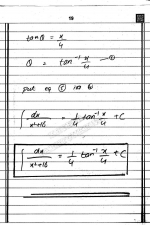 tanθ = x/4
θ = tan⁻¹ x/4 —
put eq
∫ dx/x²+16 = 1/4 tan⁻¹ x/4 + C
∫ dx/x²+16 = 1/4 tan⁻¹ x/4 + C